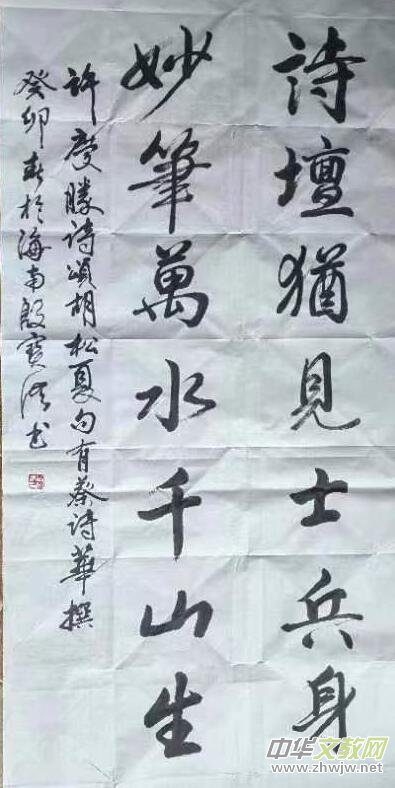 詩壇猶見士兵身
妙筆萬水千山生
許慶勝詩頌胡松夏句有蔡詩華撰
癸卯春於海南殷寶洪书
中华文教网
www.zhwjw.net